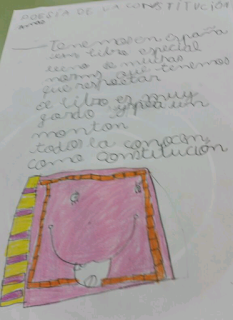 POESÍA DE LA CONSTITUCIÓN
Tenemos en España
un libro especial
lleno de muchas
normas que tenemos
que respetar
el libro es muy
gordo y pesa un
monton
todos la conocen
como constitución